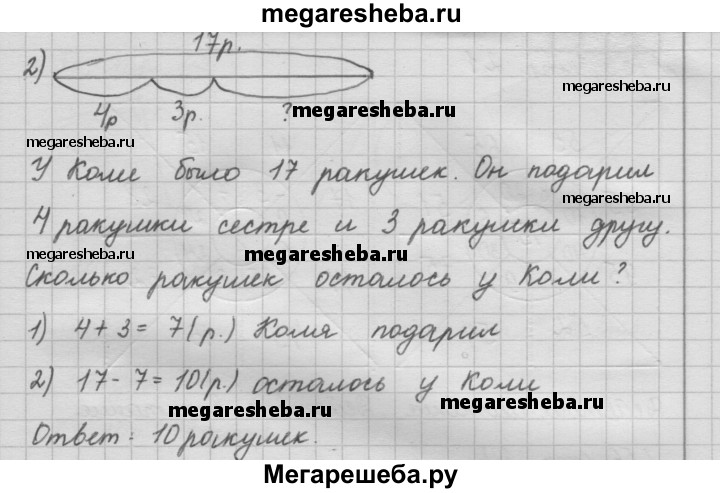 megaresheba.ru
17р.
2)
megaresheba.ru
4р 3р. ?
megaresheba.ru
megaresheba.ru
У Коли было 17 ракушек. Он подарил
4 ракушки сестре и 3 ракушки другу.
megaresheba.ru
megaresheba.ru
Сколько ракушек осталось у Коли?
1) 4+3= 7(р.) Коля подарил
2) 17-7=10(р.) осталось у Коли
megaresheba.ru
megaresheba.ru
Ответ: 10 ракушек.
Мегарешеба.ру